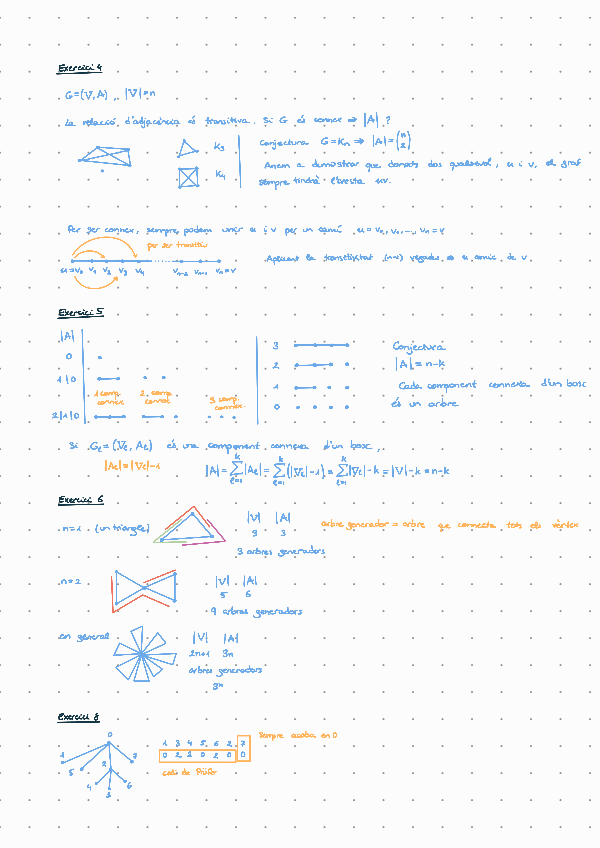 Exercici 4
G=(V,A) |V|=n
La relació d'adjacència és transitiva. Si G és connex ⇒ |A| ?
K₃
K₄
Conjectura G=Kn ⇒ |A|=(n 2)
Anem a demostrar que donats dos qualsevol, u i v, el graf
sempre tindrà l'aresta uv.
Per ser connex, sempre podem unir u i v per un camí u=v₀,v₁,...,vn=v
per ser transitiu
u=v₀ v₁ v₂ v₃ v₄ vn-2 vn-1 vn=v
Aplicant la transitivitat (n-1) vegades ⇒ u amic de v
Exercici 5
|A|
0
1|0
2|1|0
1 comp. connex
2 comp. connex
3 comp. connex
3
2
1
0
Conjectura
|A|=n-k
Cada component connexa d'un bosc
és un arbre
Si Gℓ=(Vℓ, Aℓ) és una component connexa d'un bosc,
|Aℓ|=|Vℓ|-1
|A|=∑|Aℓ|=∑(|Vℓ|-1)=∑|Vℓ|-k=|V|-k=n-k
k ℓ=1 k ℓ=1 k ℓ=1
Exercici 6
n=1 (un triangle)
|V| |A|
3 3
3 arbres generadors
arbre generador = arbre que connecta tots els vèrtex
n=2
|V| |A|
5 6
9 arbres generadors
en general
|V| |A|
2n+1 3n
arbres generadors
3ⁿ
Exercici 8
0
1 5 2 7
4 3 6
1 3 4 5 6 2 7
0 2 2 0 2 0 0
codi de Prüfer
Sempre acaba en 0